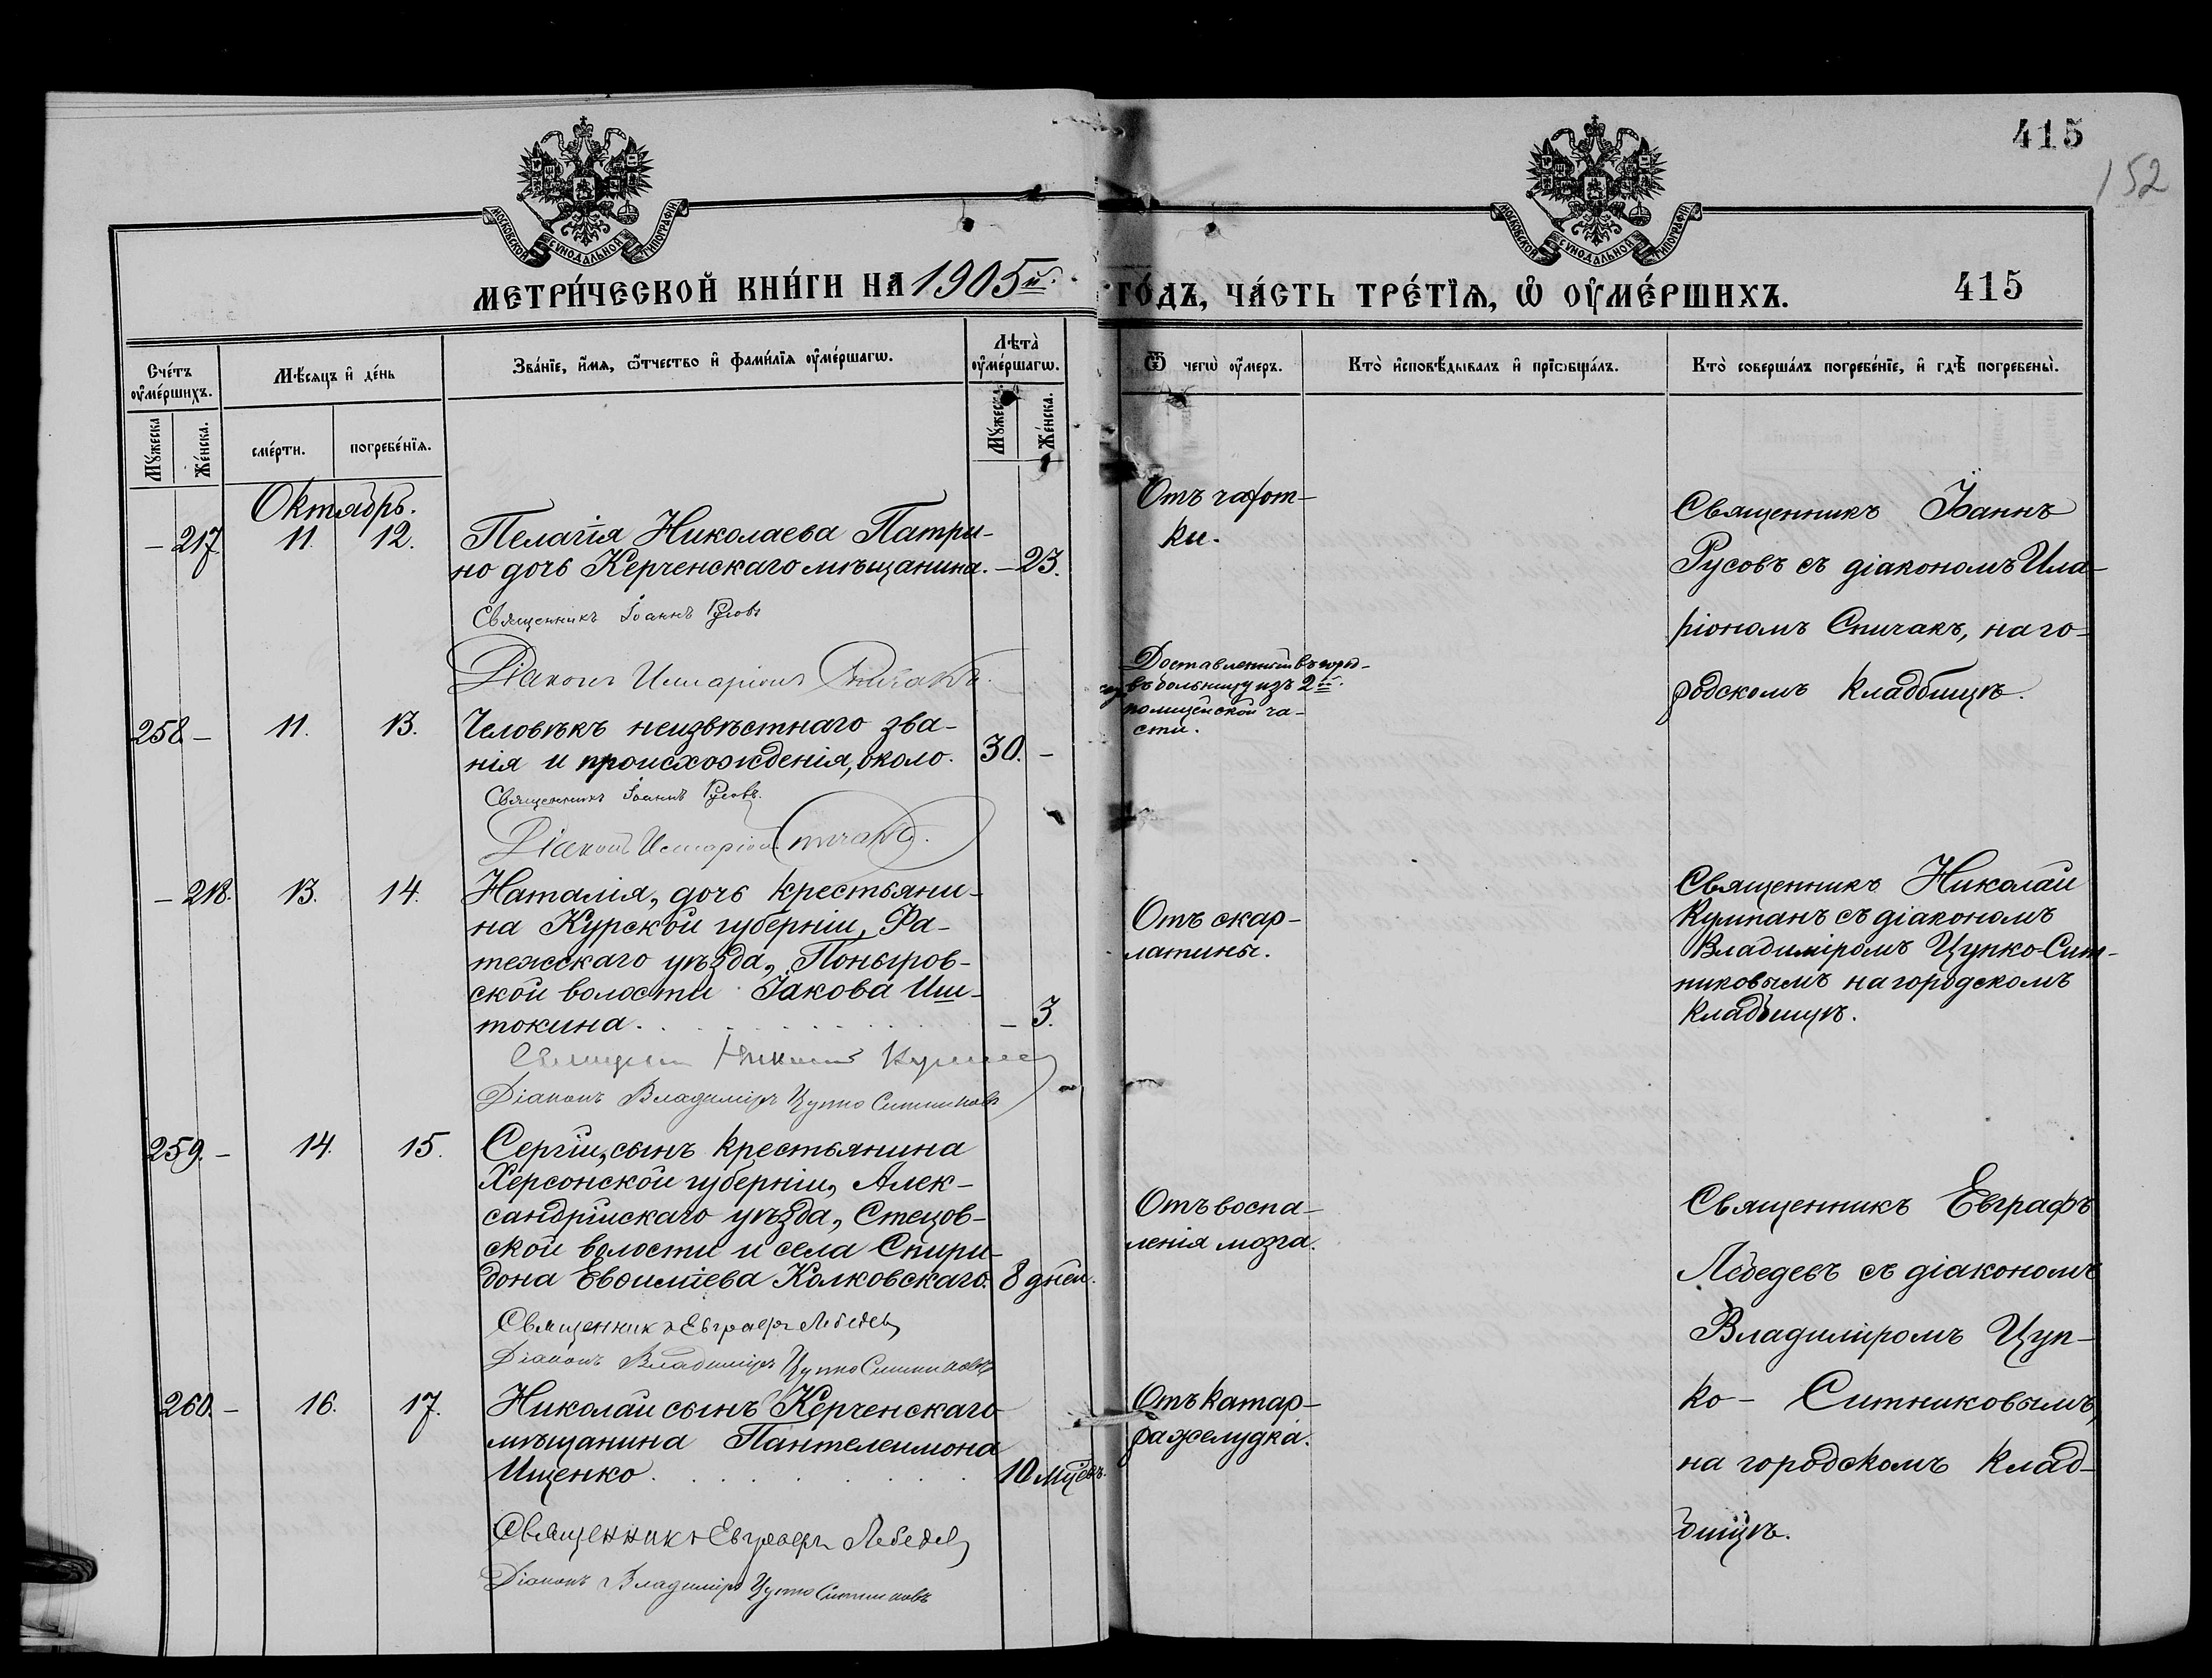 415
152
МОСКОВСКОЙ СѴНОДАЛЬНОЙ ТИПОГРАФІИ
МОСКОВСКОЙ СѴНОДАЛЬНОЙ ТИПОГРАФІИ
МЕТРИ́ЧЕСКОЙ КНИ́ГИ НА 1905й.
ГО́ДЪ, ЧА́СТЬ ТРЕ́ТЇѦ, Ѡ҆ ОУ҆МЕ́РШИХЪ.
415
Сче́тъ оу҆ме́ршихъ.
Мѣ́сяцъ и҆ де́нь
Зва́нїе, и҆́мя, ѻ҆́тчество и҆ фами́лїя оу҆ме́ршагѡ.
Лѣта̀ оу҆ме́ршагѡ.
Ѿ чегѡ̀ оу҆́меръ.
Кто̀ и҆сповѣ́дывалъ и҆ прїѡбща́лъ.
Кто̀ соверша́лъ погребе́нїе, и҆ гдѣ̀ погребены̀.
Мꙋ́жеска
Же́нска.
сме́рти.
погребе́нїѧ.
Мꙋ́жеска
Же́нска.
Октябрь.
— 217 11. 12. Пелагія Николаева Патри-
но дочь Керченскаго мѣщанина. — 23.
Священникъ Іоаннъ Русовъ
Діаконъ Иларіонъ Спичакъ.
Отъ чахот-
ки.
Священникъ Іоаннъ
Русовъ съ діакономъ Ила-
ріономъ Спичакъ, на го-
родскомъ кладбищѣ.
258 — 11. 13. Человѣкъ неизвѣстнаго зва-
нія и происхожденія, около. 30. —
Священникъ Іоаннъ Русовъ.
Діаконъ Иларіонъ Спичакъ.
Доставленный въ город-
въ больницу изъ 2й.
полицейской ча-
сти.
— 218. 13. 14. Наталія, дочь крестьяни-
на Курской губерніи, Фа-
тежскаго уѣзда, Поныров-
ской волости Іакова Иш-
токина. — 3.
Священникъ Николай
Діаконъ Владиміръ Цупко Ситниковъ
Отъ скар-
латины.
Священникъ Николай
Кулпанъ съ діакономъ
Владиміромъ Цупко-Сит-
никовымъ на городскомъ
кладбищѣ.
259. — 14. 15. Сергій, сынъ крестьянина
Херсонской губерніи, Алек-
сандрійскаго уѣзда, Стецов-
ской волости и села Спири-
дона Евѳиміева Колковскаго. 8 дней.
Священникъ Евграфъ Лебедевъ
Діаконъ Владиміръ Цупко Ситниковъ
Отъ воспа-
ленія мозга.
Священникъ Евграфъ
Лебедевъ съ діакономъ
Владиміромъ Цуп-
ко - Ситниковымъ,
на городскомъ клад-
бищѣ.
260. — 16. 17. Николай сынъ Керченскаго
мѣщанина Пантелеимона
Ищенко 10 мцевъ.
Священникъ Евграфъ Лебедевъ
Діаконъ Владиміръ Цупко Ситниковъ
Отъ катар-
ра желудка.